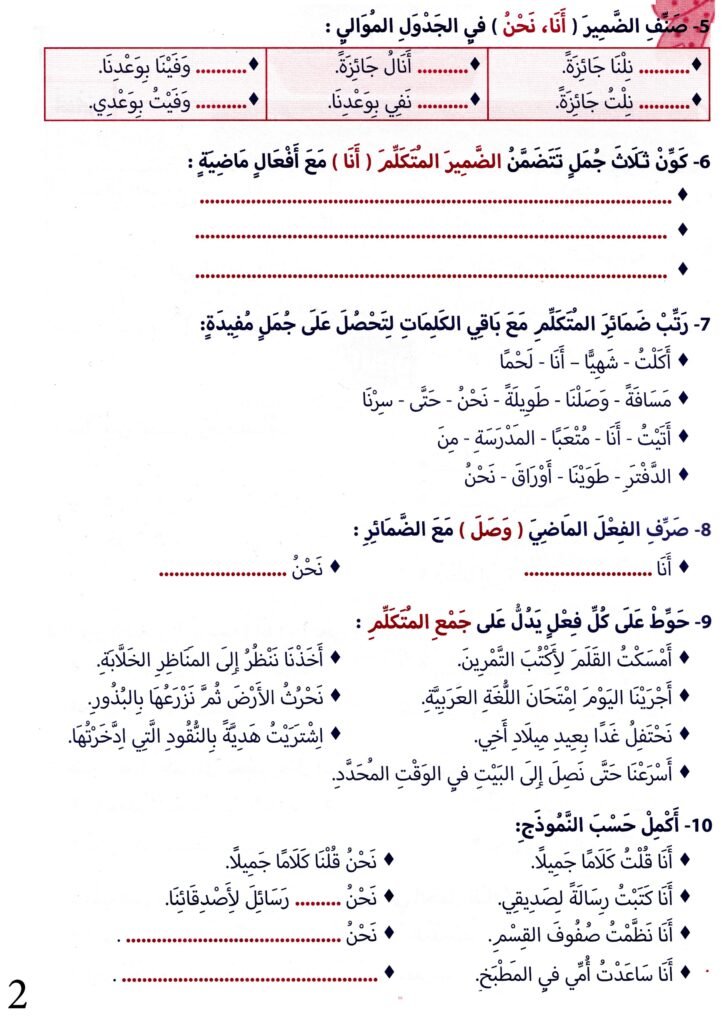 5- صَنِّفِ الضَّمِيرَ ( أَنَا، نَحْنُ ) فِي الجَدْوَلِ المُوَالِي :
♦.......... نِلْنَا جَائِزَةً. ♦.......... أَنَالُ جَائِزَةً. ♦.......... وَفَيْنَا بِوَعْدِنَا.
♦.......... نِلْتُ جَائِزَةً. ♦.......... نَفِي بِوَعْدِنَا. ♦.......... وَفَيْتُ بِوَعْدِي.
6- كَوِّنْ ثَلَاثَ جُمَلٍ تَتَضَمَّنُ الضَّمِيرَ المُتَكَلِّمَ ( أَنَا ) مَعَ أَفْعَالٍ مَاضِيَةٍ :
♦ ..............................
♦ ..............................
♦ ..............................
7- رَتِّبْ ضَمَائِرَ المُتَكَلِّمِ مَعَ بَاقِي الكَلِمَاتِ لِتَحْصُلَ عَلَى جُمَلٍ مُفِيدَةٍ:
♦ أَكَلْتُ - شَهِيًّا – أَنَا - لَحْمًا
♦ مَسَافَةً - وَصَلْنَا - طَوِيلَةً - نَحْنُ - حَتَّى - سِرْنَا
♦ أَتَيْتُ - أَنَا - مُتْعَبًا - المَدْرَسَةِ - مِنَ
♦ الدَّفْتَرِ - طَوَيْنَا - أَوْرَاقَ - نَحْنُ
8- صَرِّفِ الفِعْلَ المَاضِيَ ( وَصَلَ ) مَعَ الضَّمَائِرِ :
♦ أَنَا .................... ♦ نَحْنُ ....................
9- حَوِّطْ عَلَى كُلِّ فِعْلٍ يَدُلُّ عَلى جَمْعِ المُتَكَلِّمِ :
♦ أَمْسَكْتُ القَلَمَ لِأَكْتُبَ التَّمْرِينَ. ♦ أَخَذْنَا نَنْظُرُ إِلَى المَنَاظِرِ الخَلَّابَةِ.
♦ أَجْرَيْنَا اليَوْمَ اِمْتَحَانَ اللُّغَةِ العَرَبِيَّةِ. ♦ نَحْرُثُ الأَرْضَ ثُمَّ نَزْرَعُهَا بِالبُذُورِ.
♦ نَحْتَفِلُ غَدًا بِعِيدِ مِيلَادِ أَخِي. ♦ اِشْتَرَيْتُ هَدِيَّةً بِالنُّقُودِ الَّتِي اِدَّخَرْتُهَا.
♦ أَسْرَعْنَا حَتَّى نَصِلَ إِلَى البَيْتِ فِي الوَقْتِ المُحَدَّدِ.
10- أَكْمِلْ حَسْبَ النَّمُوذَجِ:
♦ أَنَا قُلْتُ كَلَامًا جَمِيلًا. ♦ نَحْنُ قُلْنَا كَلَامًا جَمِيلًا.
♦ أَنَا كَتَبْتُ رِسَالَةً لِصَدِيقِي. ♦ نَحْنُ ......... رَسَائِلَ لِأَصْدِقَائِنَا.
♦ أَنَا نَظَّمْتُ صُفُوفَ القِسْمِ. ♦ نَحْنُ .............................. .
♦ أَنَا سَاعَدْتُ أُمِّي فِي المَطْبَخِ. ♦ .............................. .
2